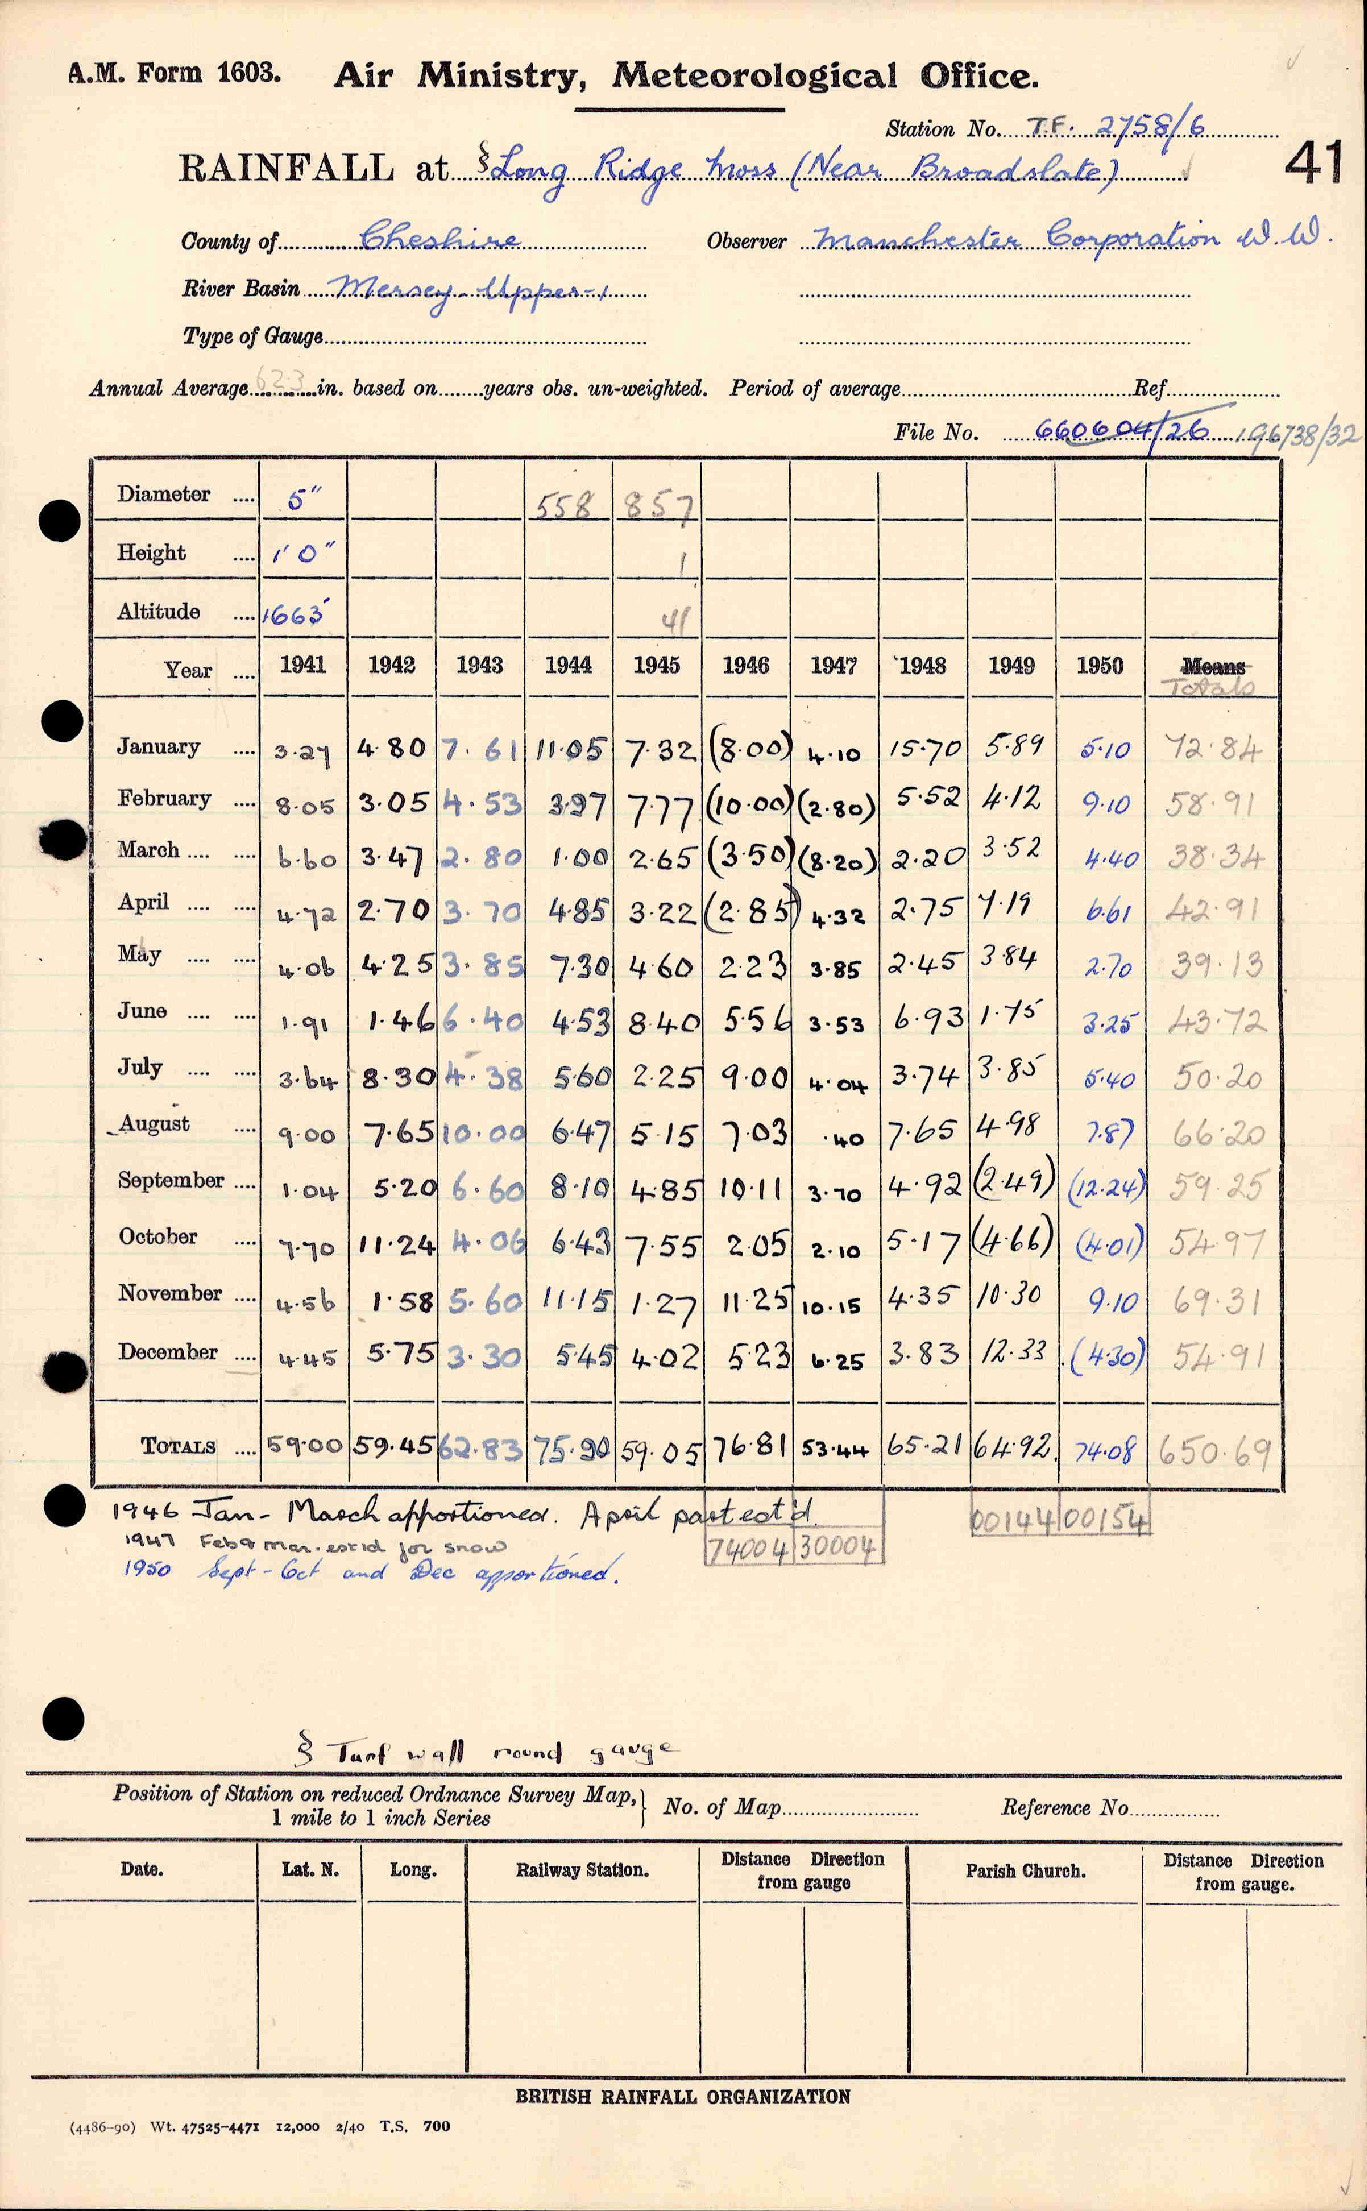 A.M. Form 1603. Air Ministry, Meteorological Office.
Station No. T.F. 2758/6
RAINFALL at § Long Ridge Moss (Near Broadslate) 41
County of Cheshire Observer Manchester Corporation W.W.
River Basin Mersey-Upper-1
Type of Gauge
Annual Average 623 in. based on years obs. un-weighted. Period of average Ref
File No. 660604/26 196738/32
Diameter .... 5" 558 857
Height .... 1'0" 1
Altitude .... 1663' 41
Year .... 1941 1942 1943 1944 1945 1946 1947 1948 1949 1950 Means
Totals
January .... 3.27 4.80 7.61 11.05 7.32 (8.00) 4.10 15.70 5.89 5.10 72.84
February .... 8.05 3.05 4.53 3.97 7.77 (10.00) (2.80) 5.52 4.12 9.10 58.91
March .... .... 6.60 3.47 2.80 1.00 2.65 (3.50) (8.20) 2.20 3.52 4.40 38.34
April .... .... 4.72 2.70 3.70 4.85 3.22 (2.85) 4.32 2.75 7.19 6.61 42.91
May .... .... 4.06 4.25 3.85 7.30 4.60 2.23 3.85 2.45 3.84 2.70 39.13
June .... .... 1.91 1.46 6.40 4.53 8.40 5.56 3.53 6.93 1.75 3.25 43.72
July .... .... 3.64 8.30 4.38 5.60 2.25 9.00 4.04 3.74 3.85 5.40 50.20
August .... 9.00 7.65 10.00 6.47 5.15 7.03 .40 7.65 4.98 7.87 66.20
September .... 1.04 5.20 6.60 8.10 4.85 10.11 3.70 4.92 (2.49) (12.24) 59.25
October .... 7.70 11.24 4.06 6.43 7.55 2.05 2.10 5.17 (4.66) (4.01) 54.97
November .... 4.56 1.58 5.60 11.15 1.27 11.25 10.15 4.35 10.30 9.10 69.31
December .... 4.45 5.75 3.30 5.45 4.02 5.23 6.25 3.83 12.33 (4.30) 54.91
TOTALS .... 59.00 59.45 62.83 75.90 59.05 76.81 53.44 65.21 64.92 74.08 650.69
1946 Jan - March apportioned. April part est'd. 00144 00154
1947 Feb & Mar. est'd for snow 74004 30004
1950 Sept - Oct and Dec apportioned.
§ Turf wall round gauge
Position of Station on reduced Ordnance Survey Map,
1 mile to 1 inch Series } No. of Map Reference No
Date. Lat. N. Long. Railway Station. Distance Direction from gauge Parish Church. Distance Direction from gauge.
BRITISH RAINFALL ORGANIZATION
(4486-90) Wt. 47525-4471 12,000 2/40 T.S. 700